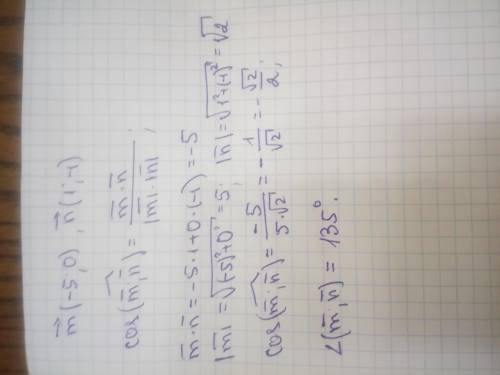 m⃗(-5; 0), n⃗(1; -1)
cos(m̅,^n̅) = (m̅·n̅)/(|m̅|·|n̅|);
m̅·n̅ = -5·1+0·(-1) = -5
|m̅| = √((-5)²+0²) = 5; |n̅| = √(1²+(-1)²) = √2
cos(m̅,^n̅) = -5/(5·√2) = -1/√2 = -√2/2;
∠(m̅,n̅) = 135°.